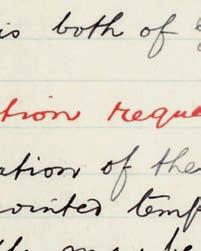 is both of
tion reque
ation of the
ointed temp
may be